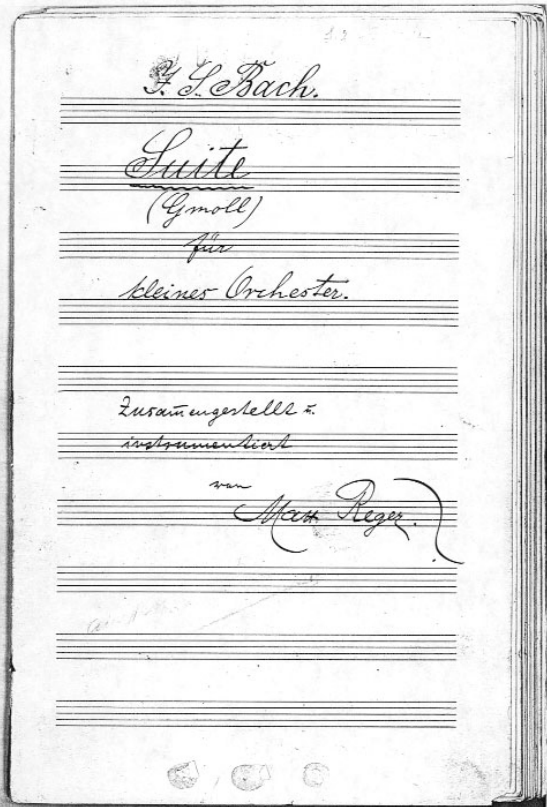 J. S. Bach.
Suite
(Gmoll)
für
kleines Orchester.
Zusam̅engestellt u.
instrumentiert
von
Max Reger.